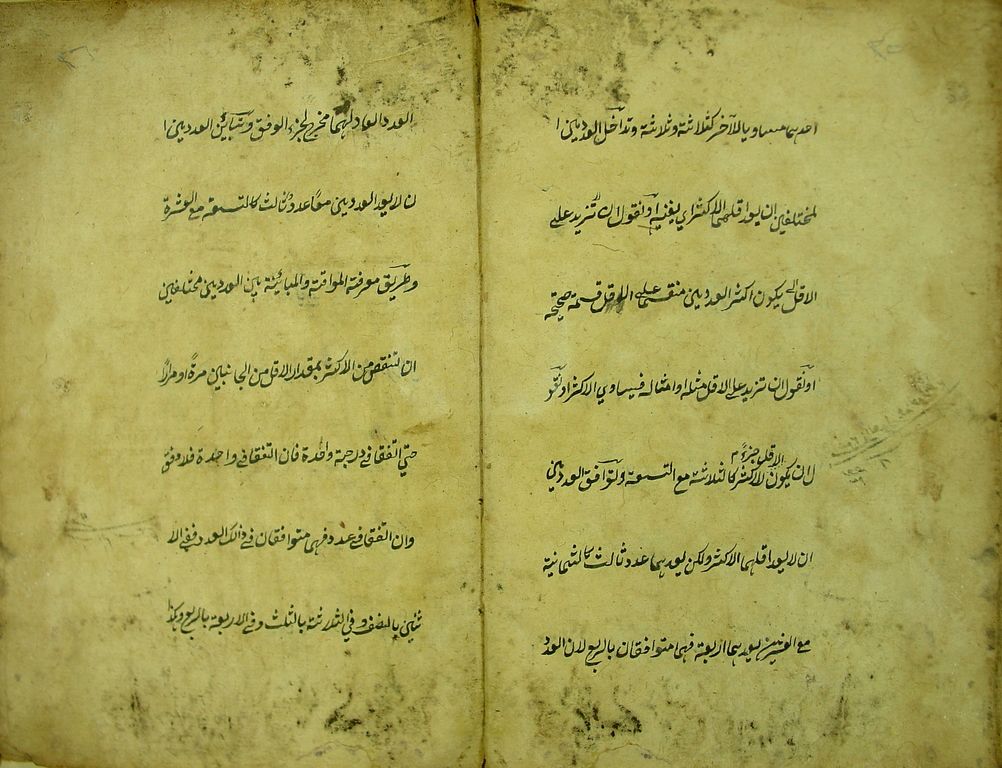 احدهما مساويا للآخر كثلاثة وثلاثة وتداخل العددين ا
لمختلفين ان يعد اقلهما الاكثر اي يفنيه او نقول ان تزيد على
الاقل يكون اكثر العددين منقسما على الاقل قسمة صحيحة
او نقول ان تزيد على الاقل مثله او امثاله فيساوي الاكثر او نقو
ل ان يكون الاقل جزء الاكثر كالثلاثة مع التسعة وتوافق العددين
ان لا يعد اقلهما الاكثر ولكن يعدهما عدد ثالث كالثمانية
مع العشرين يعدهما اربعة فهما متوافقان بالربع لان العدد
العدد العاد لهما مخرج لجزء الوفق وتباين العددين ا
ن لا يعد العددين معا عدد ثالث كالتسعة مع العشرة
وطريق معرفة الموافقة والمباينة بين العددين مختلفين
ان تنقص من الاكثر بمقدار الاقل من الجانبين مرة او مرارا
حتي اتفقا في درجة واحدة فان اتفقا في واحدة فلا وفق
وان اتفقا في عدد فهما متوافقان في ذالك العدد ففي الا
ثنين بالنصف وفي الثلاثة بالثلث وفي الاربعة بالربع وهكذا